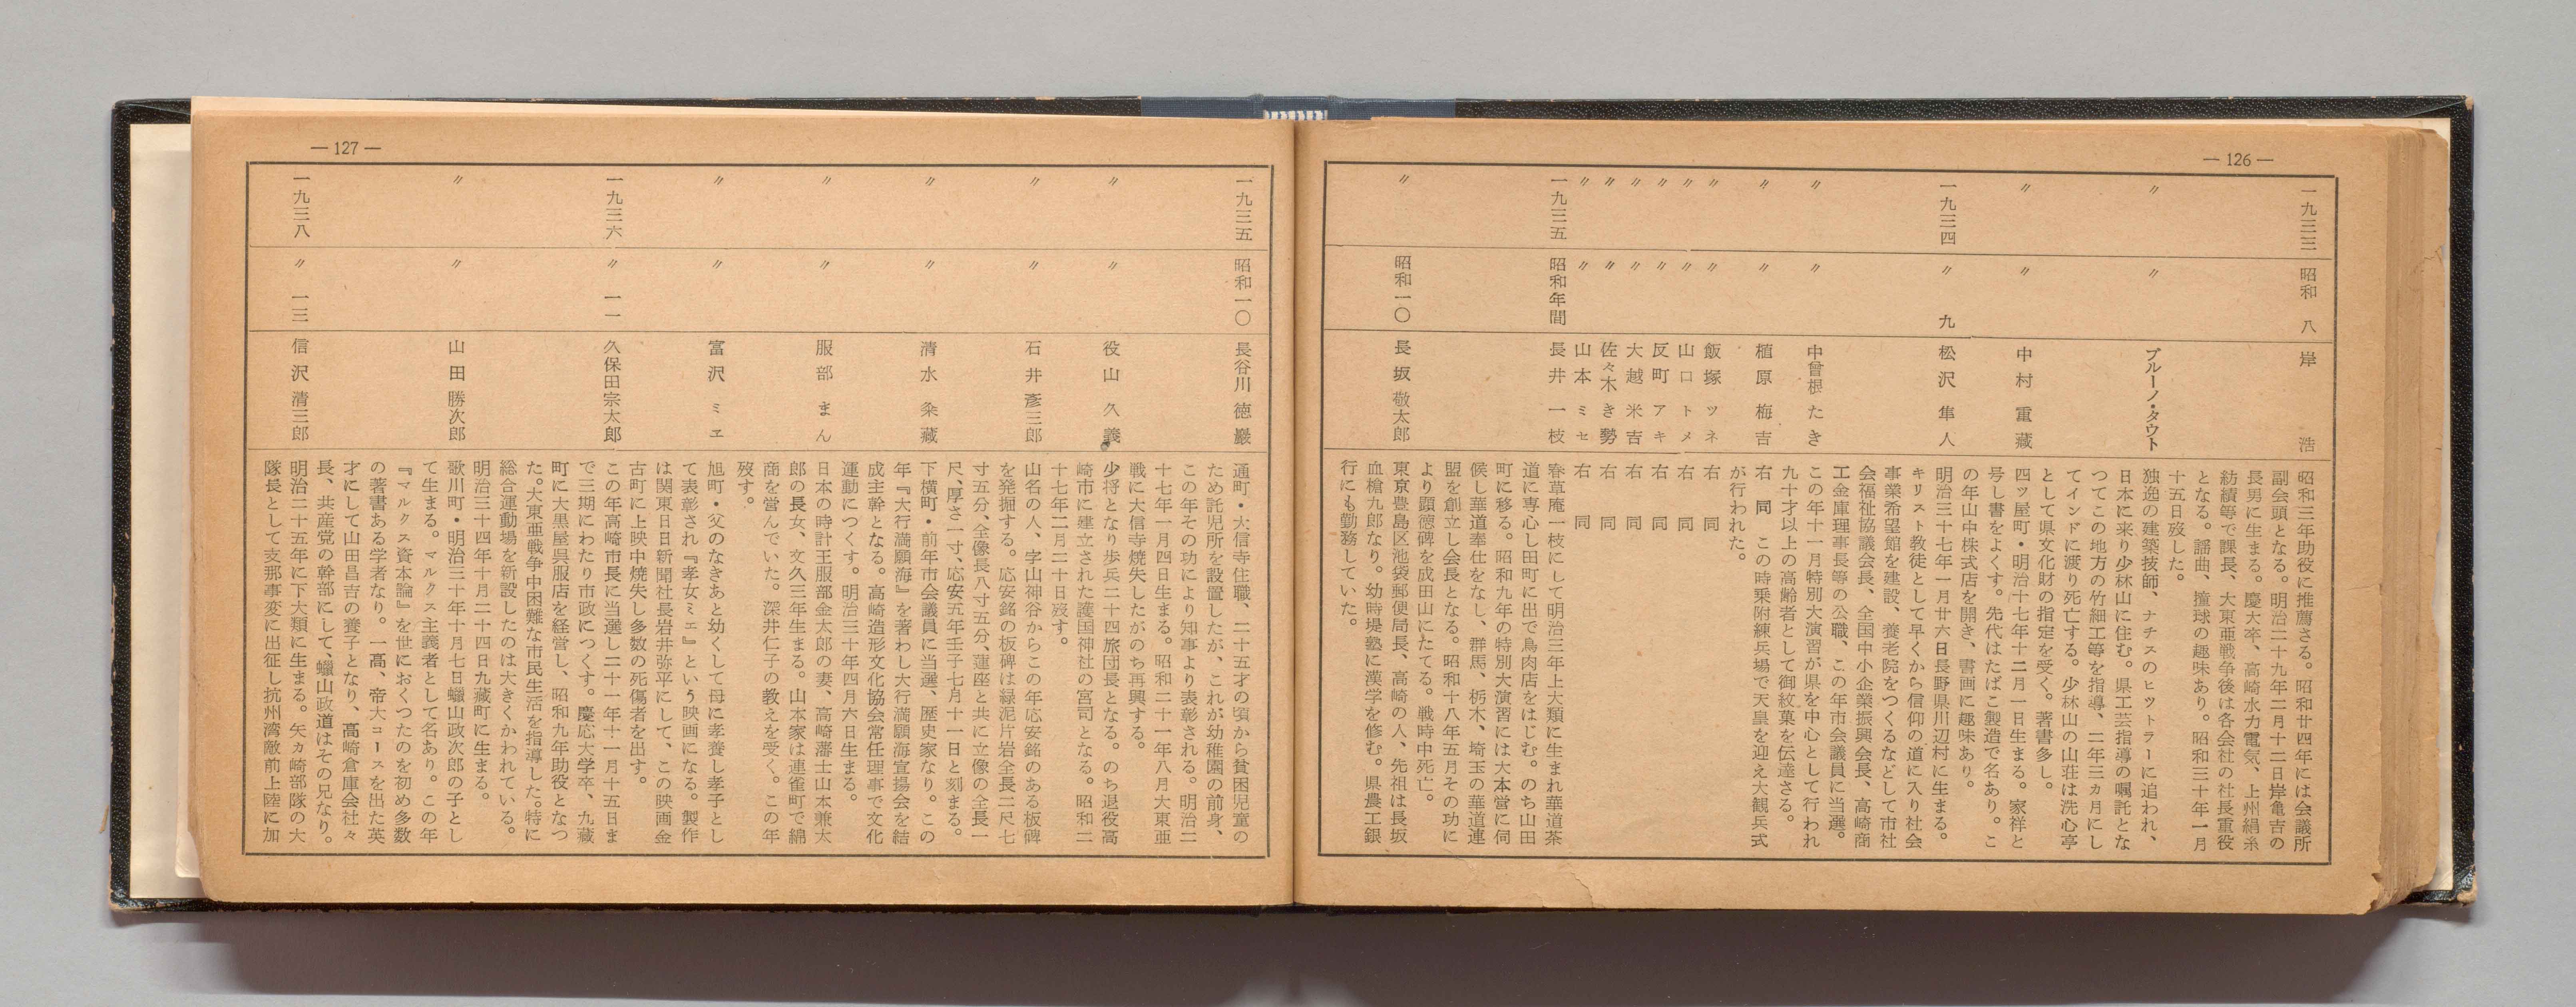 — 126 —
一九三三
昭和 八
岸 浩
昭和三年助役に推薦さる。昭和廿四年には会議所
副会頭となる。明治二十九年二月十二日岸亀吉の
長男に生まる。慶大卒、高崎水力電気、上州絹糸
紡績等で課長、大東亜戦争後は各会社の社長重役
となる。謡曲、撞球の趣味あり。昭和三十年一月
十五日歿した。
〃
〃
ブルーノ・タウト
独逸の建築技師、ナチスのヒットラーに追われ、
日本に来り少林山に住む。県工芸指導の嘱託とな
つてこの地方の竹細工等を指導、二年三カ月にし
てインドに渡り死亡する。少林山の山荘は洗心亭
として県文化財の指定を受く。著書多し。
〃
〃
中村電藏
四ツ屋町・明治十七年十二月一日生まる。家祥と
号し書をよくす。先代はたばこ製造で名あり。こ
の年山中株式店を開き、書画に趣味あり。
一九三四
〃 九
松沢隼人
明治三十七年一月廿六日長野県川辺村に生まる。
キリスト教徒として早くから信仰の道に入り社会
事業希望館を建設、養老院をつくるなどして市社
会福祉協議会長、全国中小企業振興会長、高崎商
工金庫理事長等の公職、この年市会議員に当選。
〃
〃
中曾根たき
この年十一月特別大演習が県を中心として行われ
九十才以上の高齢者として御紋菓を伝達さる。
〃
〃
植原梅吉
右 同 この時乗附練兵場で天皇を迎え大観兵式
が行われた。
〃
〃
飯塚ツネ
右 同
〃
〃
山口トメ
右 同
〃
〃
反町アキ
右 同
〃
〃
大越米吉
右 同
〃
〃
佐々木き勢
右 同
〃
〃
山本ミセ
右 同
一九三五
昭和年間
長井一枝
春草庵一枝にして明治三年上大類に生まれ華道茶
道に専心し田町に出で鳥肉店をはじむ。のち山田
町に移る。昭和九年の特別大演習には大本営に伺
候し華道奉仕をなし、群馬、栃木、埼玉の華道連
盟を創立し会長となる。昭和十八年五月その功に
より顕徳碑を成田山にたてる。戦時中死亡。
〃
昭和一〇
長坂敬太郎
東京豊島区池袋郵便局長、高崎の人、先祖は長坂
血槍九郎なり。幼時堤塾に漢学を修む。県農工銀
行にも勤務していた。
— 127 —
一九三五
昭和一〇
長谷川徳巖
通町・大信寺住職、二十五才の頃から貧困児童の
ため託児所を設置したが、これが幼稚園の前身、
この年その功により知事より表彰される。明治二
十七年一月四日生まる。昭和二十一年八月大東亜
戦に大信寺焼失したがのち再興する。
〃
〃
役山久義
少将となり歩兵二十四旅団長となる。のち退役高
崎市に建立された護国神社の宮司となる。昭和二
十七年二月二十日歿す。
〃
〃
石井彥三郎
山名の人、字山神谷からこの年応安銘のある板碑
を発掘する。応安銘の板碑は緑泥片岩全長二尺七
寸五分、全像長八寸五分、蓮座と共に立像の全長一
尺、厚さ一寸、応安五年壬子七月十一日と刻まる。
〃
〃
清水粂藏
下横町・前年市会議員に当選、歴史家なり。この
年『大行満願海』を著わし大行満願海宣揚会を結
成主幹となる。高崎造形文化協会常任理事で文化
運動につくす。明治三十年四月六日生まる。
〃
〃
服部まん
日本の時計王服部金太郎の妻、高崎藩士山本兼大
郎の長女、文久三年生まる。山本家は連雀町で綿
商を営んでいた。深井仁子の教えを受く。この年
歿す。
〃
〃
富沢ミヱ
旭町・父のなきあと幼くして母に孝養し孝子とし
て表彰され『孝女ミェ』という映画になる。製作
は関東日日新聞社長岩井弥平にして、この映画金
古町に上映中焼失し多数の死傷者を出す。
一九三六
〃 一一
久保田宗太郎
この年高崎市長に当選し二十一年十一月十五日ま
で三期にわたり市政につくす。慶応大学卒、九藏
町に大黒屋呉服店を経営し、昭和九年助役となつ
た。大東亜戦争中困難な市民生活を指導した。特に
総合運動場を新設したのは大きくかわれている。
明治三十四年十月二十四日九藏町に生まる。
〃
〃
山田勝次郎
歌川町・明治三十年十月七日蠟山政次郎の子とし
て生まる。マルクス主義者として名あり。この年
『マルクス資本論』を世におくつたのを初め多数
の著書ある学者なり。一高、帝大コースを出た英
才にして山田昌吉の養子となり、高崎倉庫会社々
長、共産党の幹部にして、蠟山政道はその兄なり。
一九三八
〃 一三
信沢清三郎
明治二十五年に下大類に生まる。矢カ崎部隊の大
隊長として支那事変に出征し抗州湾敵前上陸に加